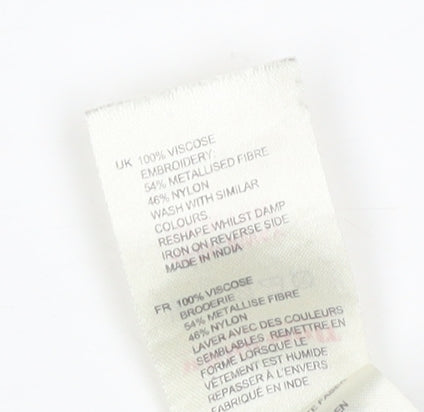 UK 100% VISCOSE
EMBROIDERY:
54% METALLISED FIBRE
46% NYLON
WASH WITH SIMILAR
COLOURS
RESHAPE WHILST DAMP
IRON ON REVERSE SIDE
MADE IN INDIA
FR 100% VISCOSE
BRODERIE
54% METALLISE FIBRE
46% NYLON
LAVER AVEC DES COULEURS
SEMBLABLES REMETTRE EN
FORME LORSQUE LE
VÊTEMENT EST HUMIDE
REPASSER À L'ENVERS
FABRIQUÉ EN INDE